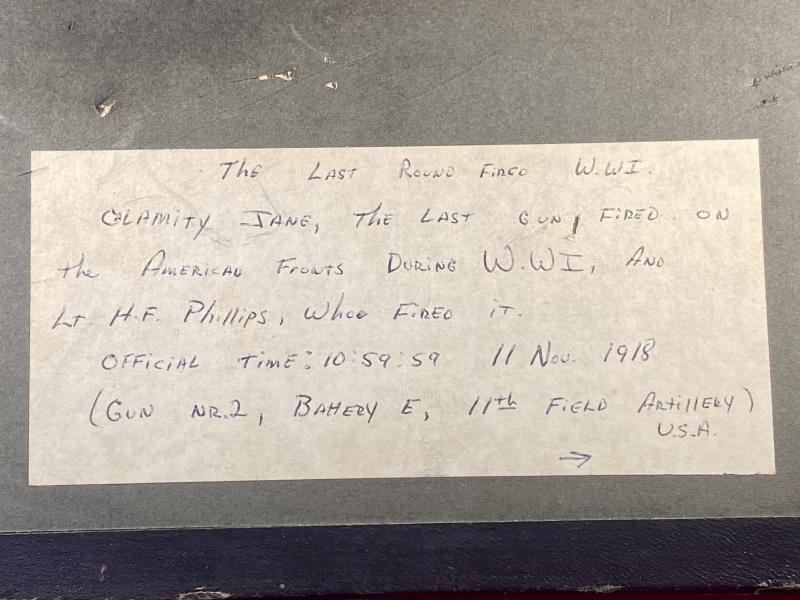 The Last Round Fired W.WI.
Calamity Jane, the Last Gun, Fired on
the American Fronts During W.WI, And
Lt. H.F. Phillips, Whoo Fired it.
Official Time: 10:59:59 11 Nov. 1918
(Gun Nr.2, Battery E, 11th Field Artillery)
U.S.A.
→